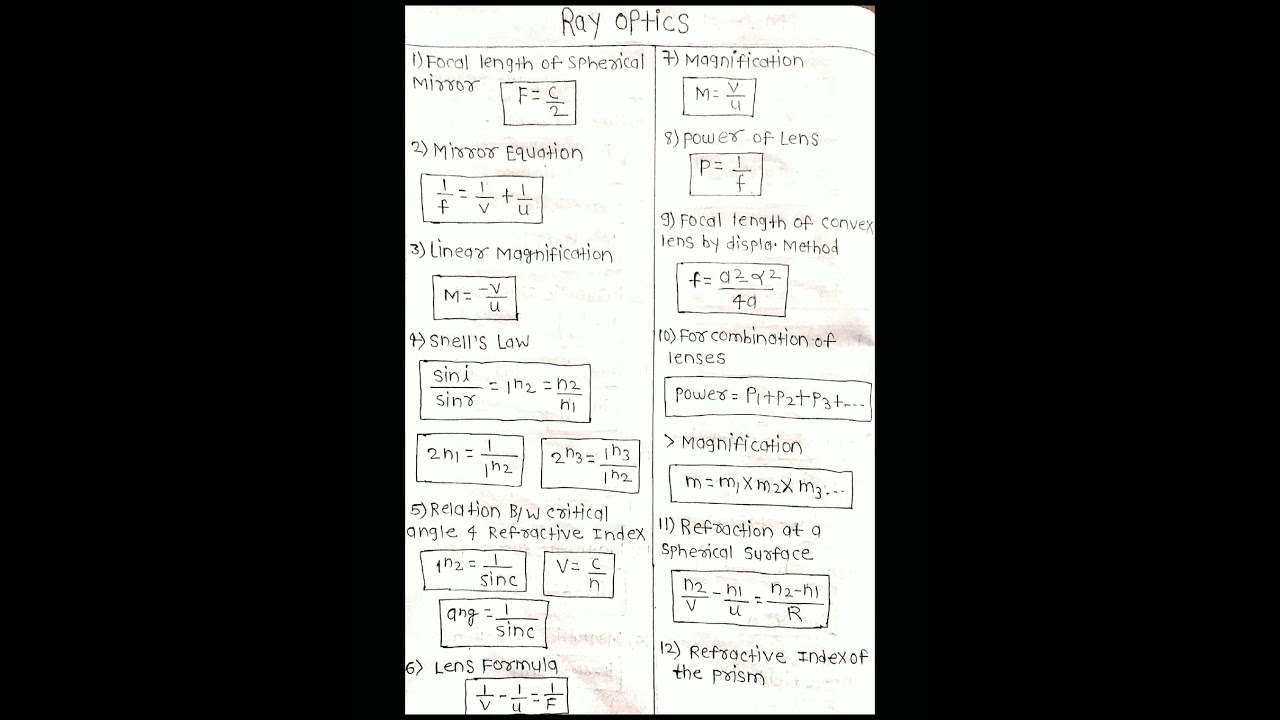 Ray Optics
1) Focal length of Spherical
Mirror
F = c/2
2) Mirror Equation
1/f = 1/v + 1/u
3) Linear Magnification
M = -v/u
4) Snell's Law
sin i/sin r = 1n2 = n2/n1
2n1 = 1/1n2
2n3 = 1n3/1n2
5) Relation B/w critical
angle & Refractive Index
1n2 = 1/sinc
V = c/n
ang = 1/sinc
6) Lens Formula
1/v - 1/u = 1/F
7) Magnification
M = v/u
8) Power of Lens
P = 1/f
9) Focal length of convex
lens by displa. Method
f = a²-α²/4a
10) For combination of
lenses
Power = P1+P2+P3+....
> Magnification
m = m1 x m2 x m3...
11) Refraction at a
Spherical Surface
n2/v - n1/u = n2-n1/R
12) Refractive Index of
the prism